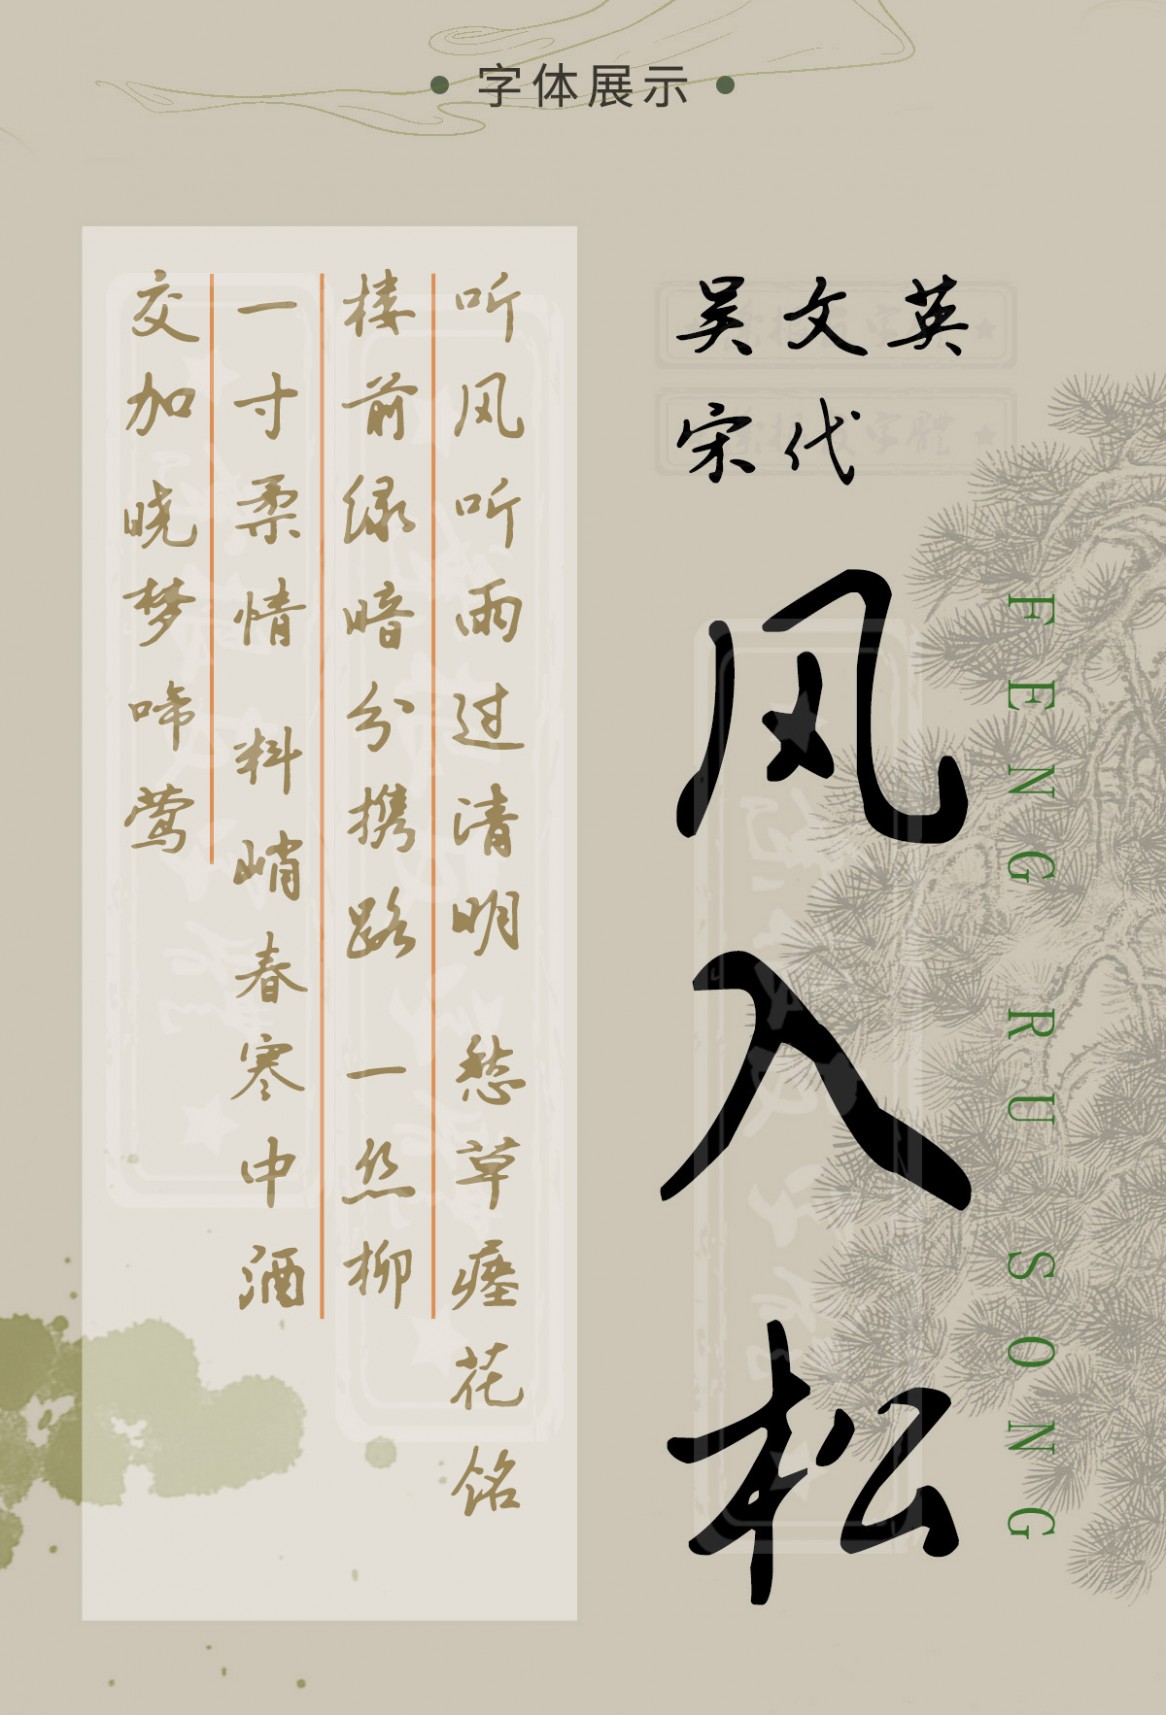 字体展示
吴文英
宋代
风入松
FENG RU SONG
听风听雨过清明 愁草瘗花铭
楼前绿暗分携路 一丝柳
一寸柔情 料峭春寒中酒
交加晓梦啼莺